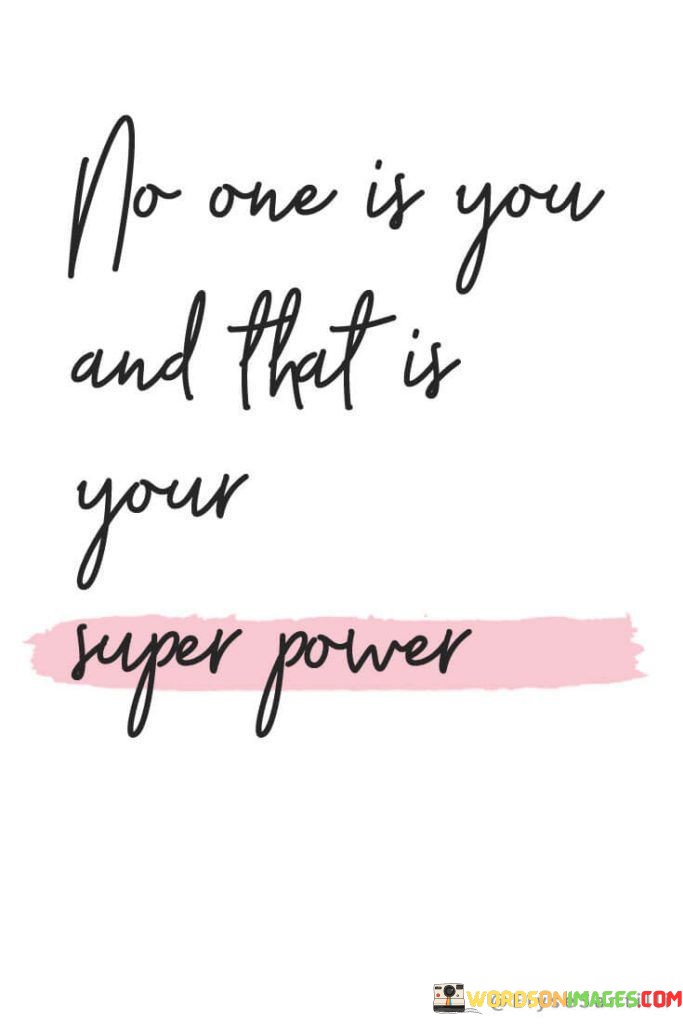 No one is you
and that is
your
super power
WORDSONIMAGES.COM